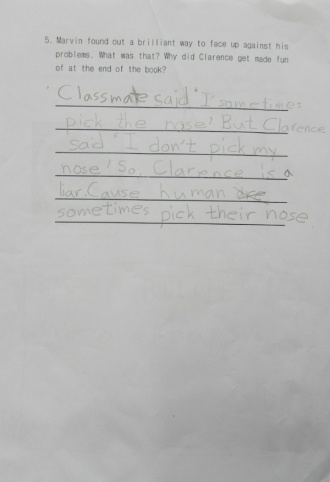 5. Marvin found out a brilliant way to face up against his
problems. What was that? Why did Clarence get made fun
of at the end of the book?
Classmate said "I sometimes
pick the nose' But Clarence
said "I don't pick my
nose! So, Clarence is a
liar. Cause human are
sometimes pick their nose